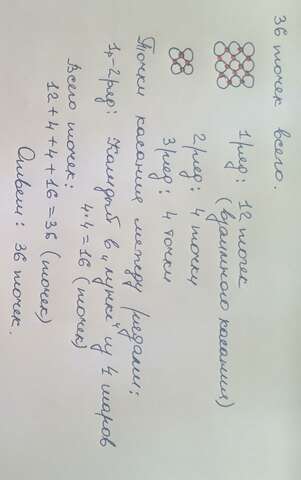 36 точек всего.
1 ряд: 12 точек
(взаимного касания)
2 ряд: 4 точки
3 ряд: 4 точки
Точки касания между рядами:
1-2 ряд: Каждый в "лунке" из 4 шаров
4·4=16 (точек)
Всего точек:
12+4+4+16=36 (точек)
Ответ: 36 точек.